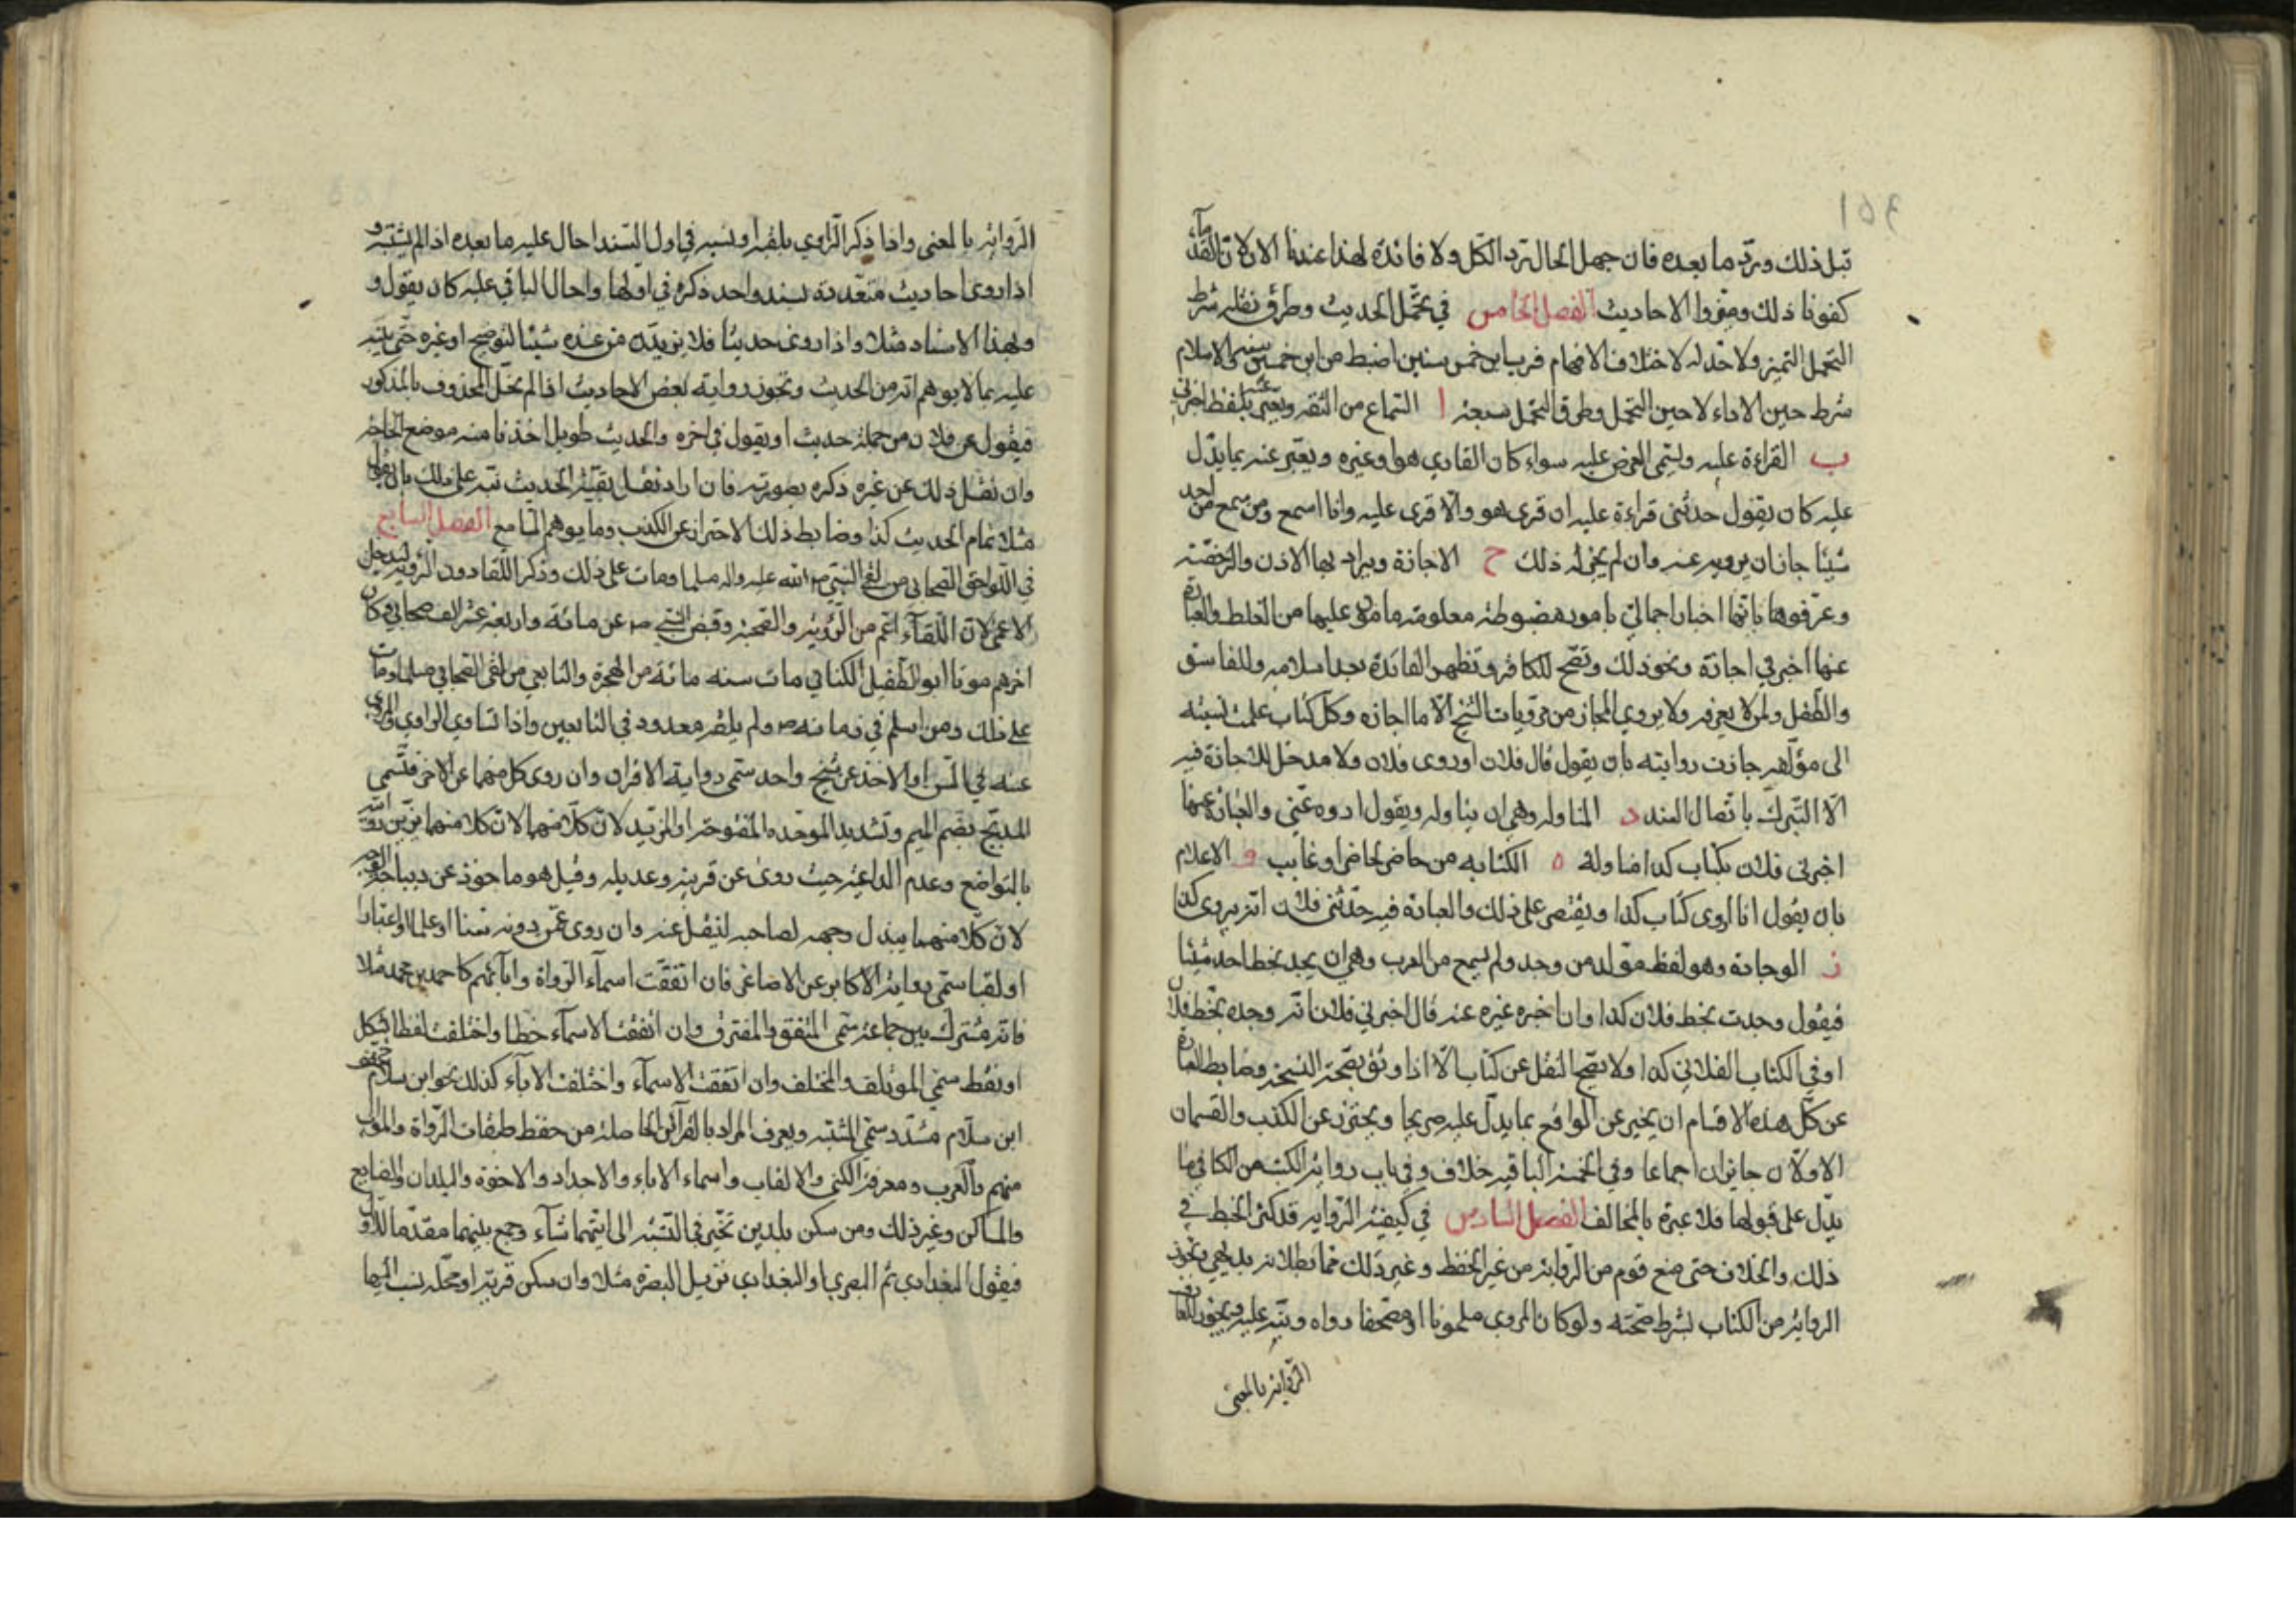 قبل ذلك وترد ما بعده فان جهل الحال ترد الكل ولا فائدة لهذا عندنا الان لان القدمآ
كفونا ذلك وميزوا الاحاديث الفصل الخامس في تحمل الحديث وطرق نقله شرط
التحمل التميز ولا حد له لاختلاف الافهام فرب ابن خمس سنين اضبط من ابن خمسين سنة والاسلام
شرط حين الاداء لا حين التحمل وطرق التحمل سبعة ا السماع من الثقة ويعبر عنه بلفظ اخبرني
ب القراءة عليه ويسمى العرض عليه سواء كان القاري هو او غيره ويعبر عنه بما يدل
عليه كان يقول حدثني قراءة عليه ان قرى هو والا قرى عليه وانا اسمع ومن سمع من احد
شيئا جاز ان يرويه عنه وان لم يجز له ذلك ح الاجازة ويراد بها الاذن والرخصة
وعرفوها بانها اخبار اجمالي بامور مضبوطة معلومة مامون عليها من الغلط والعبارة
عنها اخبرني اجازة ونحو ذلك وتصح للكافر وتظهر الفائدة بعد اسلامه وللفاسق
والطفل ولمن لا يعرفه ولا يروي المجاز من مرويات الشيخ الا ما اجازه وكل كتاب علمت نسبته
الى مؤلفه جازت روايته بان يقول قال فلان او روى فلان ولا مدخل للاجازة فيه
الا التبرك باتصال السند د المناولة وهي ان يناوله ويقول اروه عني والعبارة عنها
اخبرني فلان بكتاب كذا مناولة ه الكتابه من حاضر لحاضر او غايب و الاعلام
بان يقول انا اروى كتاب كذا ويقتصر على ذلك والعبارة فيه حدثني فلان انه يروى كذا
ز الوجادة وهو لفظ مولد من وجد ولم يسمع من العرب وهي ان يجد بخط احد شيئا
فيقول وجدت بخط فلان كذا وان اخبره غيره عنه قال اخبرني فلان انه وجده بخط فلان
او في الكتاب الفلاني كذا ولا يصح النقل عن كتاب الا اذا وثق بصحة النسخة وضابط العبارة
عن كل هذه الاقسام ان يخبر عن الواقع بما يدل عليه صريحا ويحترز عن الكذب والقسمان
الاولان جايزان اجماعا وفي الخمسة الباقيه خلاف وفي باب رواية الكتب من الكافي ما
يدل على قبولها فلا عبرة بالمخالف الفصل السادس في كيفية الروايه قد كثر الخبط في
ذلك والخلاف حتى منع قوم من الرواية من غير الحفظ وغير ذلك مما بطلانه بديهي وتجوز
الرواية من الكتاب بشرط صحته ولو كان المروى ملحونا او مصحفا رواه ونبه عليه ويجوز للعارف
الرواية بالمعنى
الرواية بالمعنى واذا ذكر الراوي بلقبه او نسبه في اول السند احال عليه ما بعده اذا لم يشتبه و
اذا روى احاديث متعددة بسند واحد ذكره في اولها واحال الباقي عليه كان يقول و
وبهذا الاسناد مثلا واذا روى حديثا فلا يزيده من عنده شيئا لتوضيح او غيره حتى ينبه
عليه بما لا يوهم انه من الحديث وتجوز رواية بعض الاحاديث اذا لم يخل المحذوف بالمذكور
فيقول عن فلان من جملة حديث او يقول في اخره والحديث طويل اخذنا منه موضع الحاجة
وان نقل ذلك عن غيره ذكره بصورته فان اراد نقل بقية الحديث نبه على ذلك بان يقول
مثلا تمام الحديث كذا وضابط ذلك الاحتراز عن الكذب وما يوهم السامع الفصل السابع
في اللواحق الصحابي من لقي النبي ص الله عليه واله مسلما ومات على ذلك وذكر اللقا دون الرؤية ليدخل
الاعمى لان اللقآء اعم من الرؤية والصحبة وقبض النبي ص عن مائة واربعة عشر الف صحابي وكان
اخرهم موتا ابو الطفيل الكناني مات سنه مائة من الهجرة والتابعي من لقى الصحابي مسلما ومات
على ذلك ومن اسلم في زمانه ص ولم يلقه معدود في التابعين واذا تساوي الراوي والمروى
عنه في السن او الاخذ عن شيخ واحد سمى رواية الاقران وان روى كل منهما عن الاخر فتسمى
المدبج بضم الميم وتشديد الموحده المفتوحة
بالتواضع وعدم الداعية حيث روى عن قرينه وعديله وقيل هو ماخوذ عن ديباجة الوجه
لان كلا منهما يبذل وجهه لصاحبه لينقل عنه وان روى عمن دونه سنا او علما او اعتبارا
او لقبا سمى رواية الاكابر عن الاصاغر فان اتفقت اسمآء الرواة وابآئهم كاحمد بن محمد مثلا
فانه مشترك بين جماعة سمى المتفق والمفترق وان اتفقت الاسمآء خطا واختلفت لفظا بشكل
او نقط سمى المؤتلف والمختلف وان اتفقت الاسمآء واختلفت الابآء كذلك نحو ابن سلام مخفف
ابن سلام مشدد سمى المشتبه ويعرف المراد بالقرآئن الحاصلة من حفظ طبقات الرواة والموالى
منهم والعرب ومعرفة الكنى والالقاب واسماء الاباء والاجداد والاخوة والبلدان والصنايع
والمساكن وغير ذلك ومن سكن بلدين تخير في النسبة الى ايتهما شآء وجمع بينهما مقدما للاول
فيقول البغدادي ثم البصري او البغدادي نزيل البصرة مثلا وان سكن قرية او محلة نسب اليها